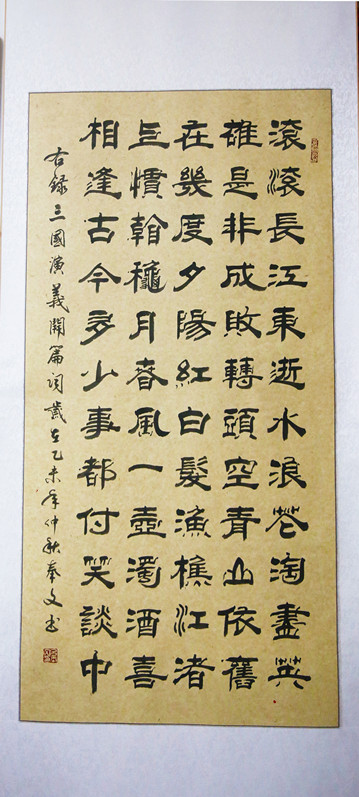 滾滾長江東逝水浪花淘盡英
雄是非成敗轉頭空青山依舊
在幾度夕陽紅白髮漁樵江渚
上慣看龝月春風一壺濁酒喜
相逢古今多少事都付笑談中
右錄三國演義開篇詞歲在乙未年仲秋奉文书